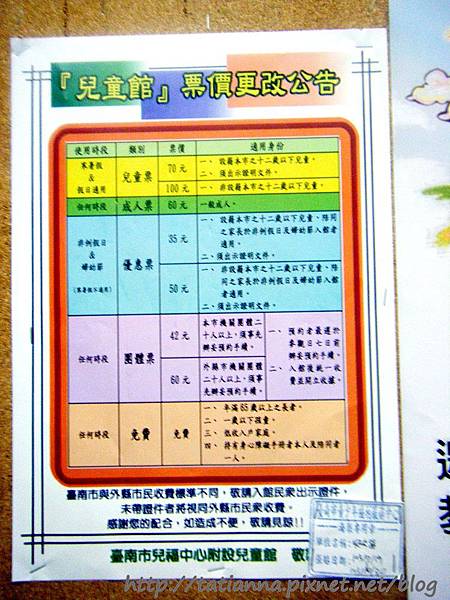 『兒童館』票價更改公告
使用時段 類別 票價 適用身份
寒暑假
&
假日適用
兒童票
70元
一、設籍本市之十二歲以下兒童。
二、須出示證明文件。
100元
一、非設籍本市之十二歲以下兒童。
任何時段 成人票 60元 一般成人。
非例假日
&
婦幼節
(寒暑假不適用)
優惠票
35元
一、設籍本市之十二歲以下兒童、陪同
之家長於非例假日及婦幼節入館者
適用。
二、須出示證明文件。
50元
一、非設籍本市之十二歲以下兒童、陪
同之家長於非例假日及婦幼節入館
者適用。
二、須出示證明文件。
任何時段
團體票
42元
本市機關團體二
十人以上,須事先
辦妥預約手續。
60元
外縣市機關團體
二十人以上,須事
先辦妥預約手續。
一、預約者最遲於
參觀日七日前
辦妥預約手續。
二、入館後統一收
費並開立收據。
任何時段 免費 免費
一、年滿65歲以上之長者。
二、一歲以下孩童。
三、低收入戶家庭。
四、持有身心障礙手冊者本人及陪同者
一人。
臺南市與外縣市民收費標準不同,敬請入館民眾出示證件,
未帶證件者將視同外縣市民眾收費。
感謝您的配合,如造成不便,敬請見諒!!
臺南市兒福中心附設兒童館 敬
http://tatianna.pixnet.net/blog